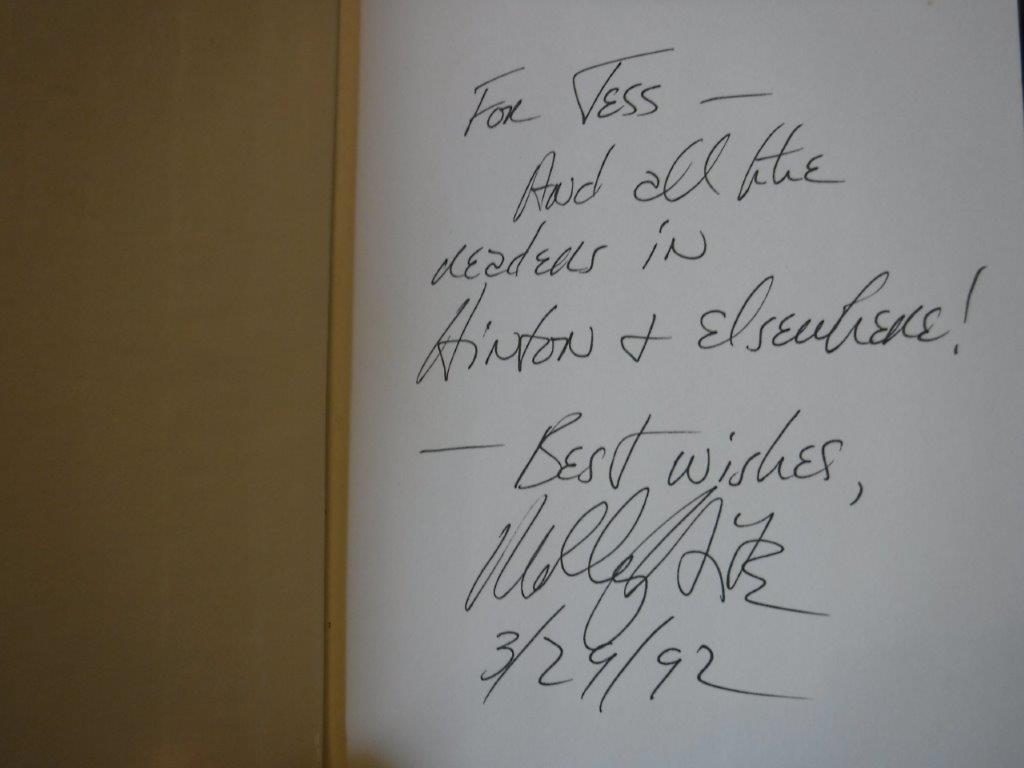 For Tess —
And all the
readers in
Hinton & elsewhere!
— Best wishes,
3/29/92